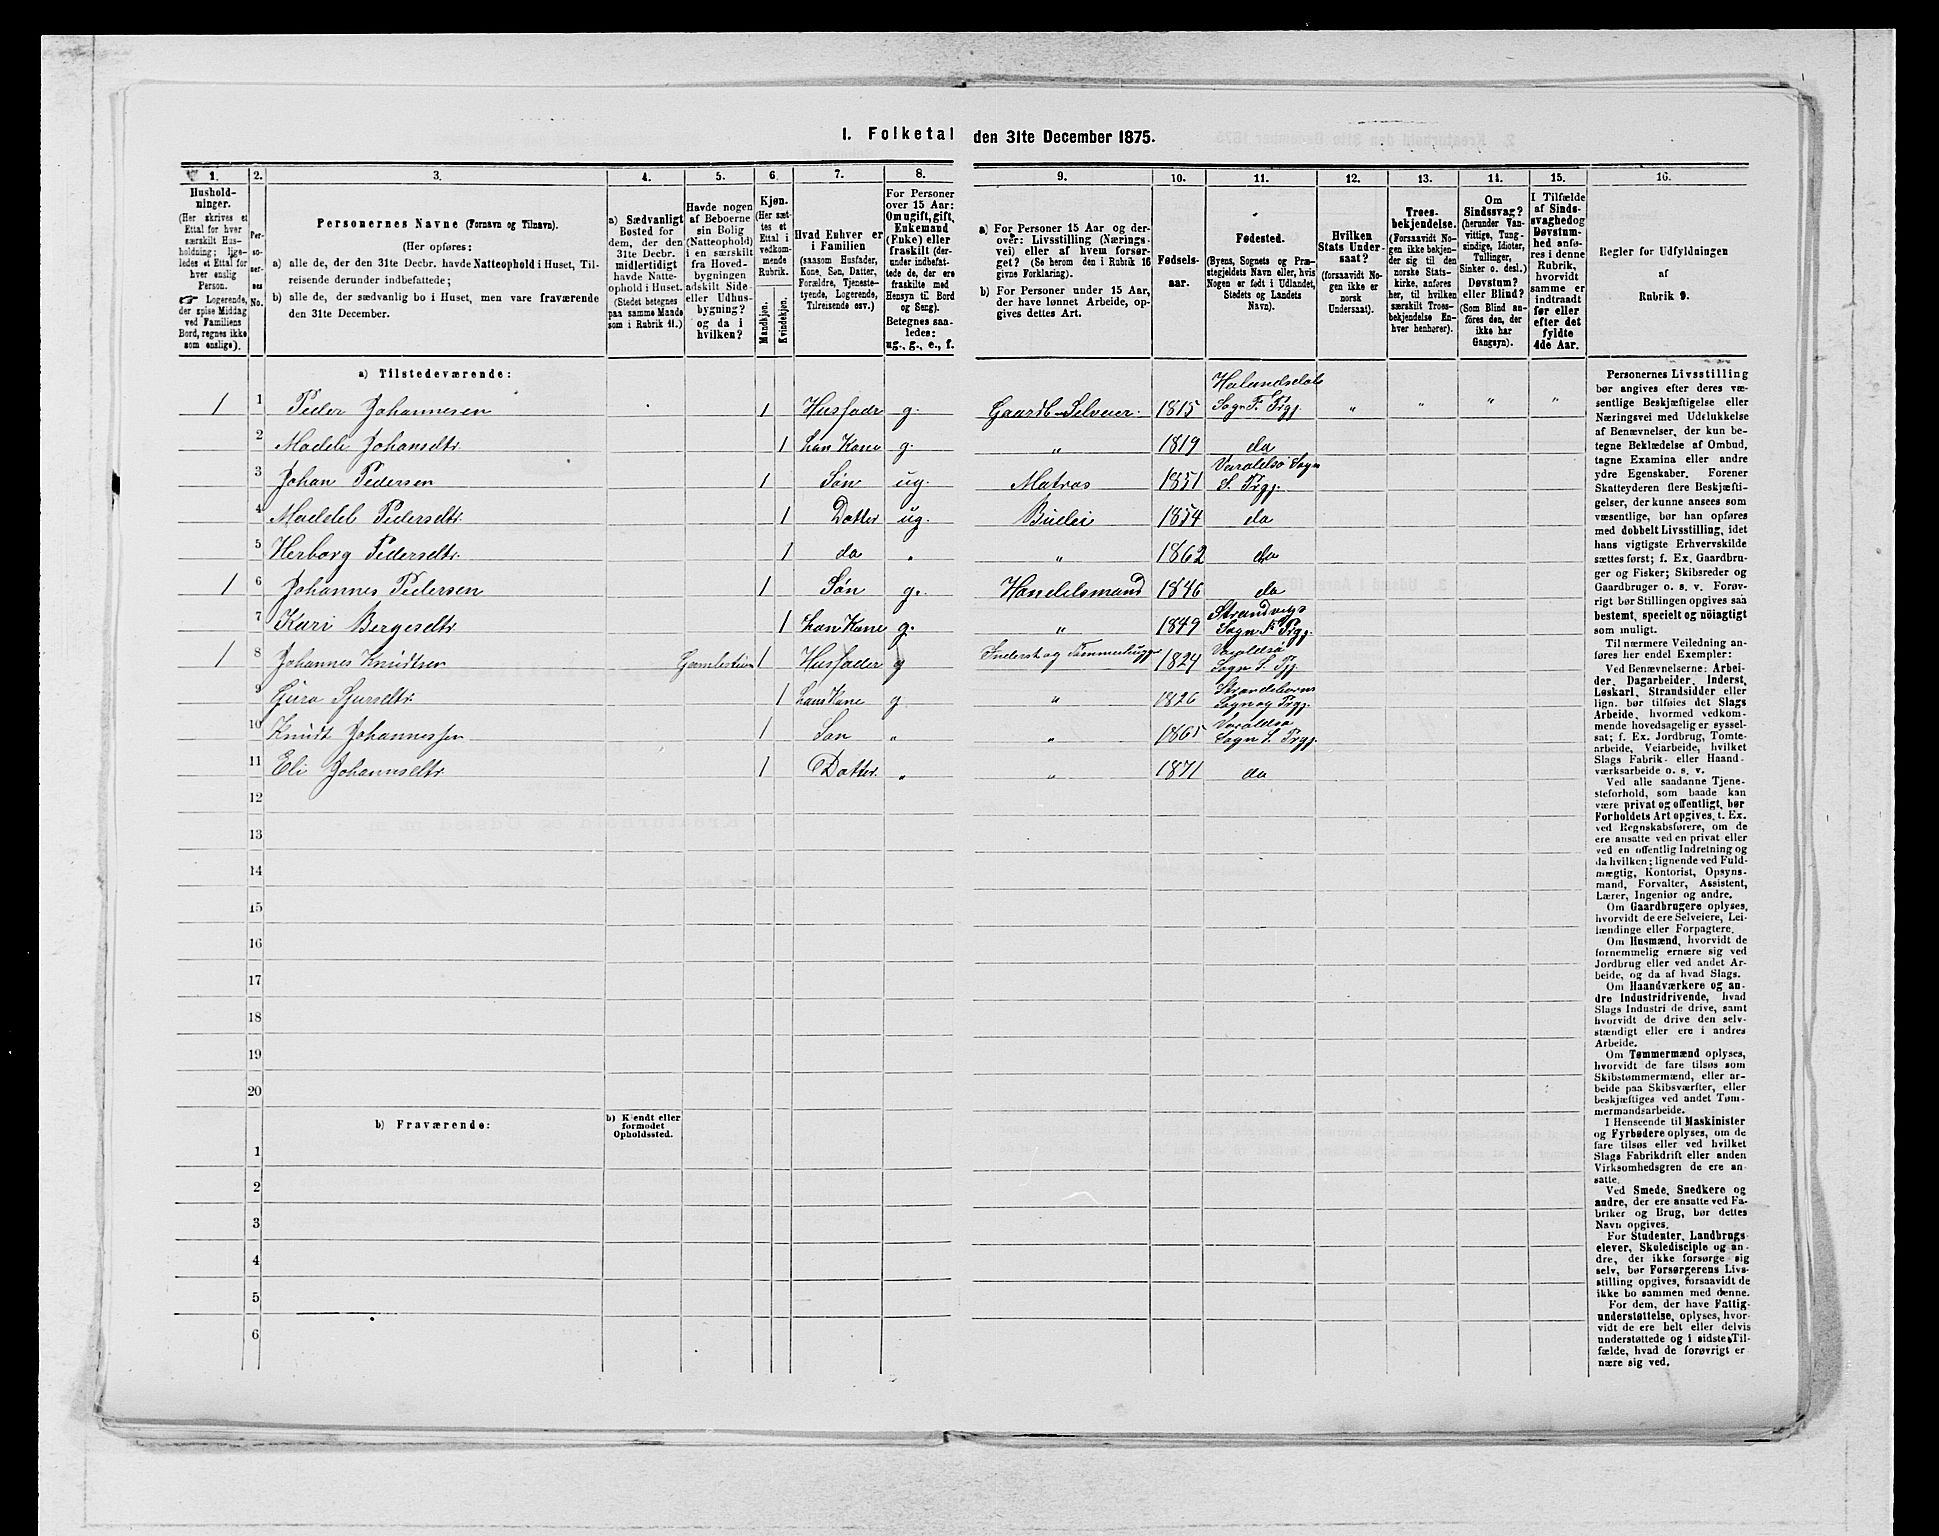 I. Folketal den 31te December 1875.
1. 2. 3. 4. 5. 6. 7. 8. 9. 10. 11. 12. 13. 14. 15. 16.
Hushold-
ninger.
(Her skrives et
Ettal for hver
særskilt Hus-
holdning; lige-
ledes et Ettal for
hver enslig
Person.
☞ Logerende,
der spise Middag
ved Familiens
Bord, regnes ikke
som enslige).
Per-
so-
ner-
nes
No.
Personernes Navne (Fornavn og Tilnavn).
(Her opføres:
a) alle de, der den 31te Decbr. havde Natteophold i Huset, Til-
reisende derunder indbefattede;
b) alle de, der sædvanlig bo i Huset, men vare fraværende
den 31te December.
a) Sædvanligt
Bosted for
dem, der den
31te Decbr.
midlertidigt
havde Natte-
ophold i Huset.
(Stedet betegnes
paa samme Maade
som i Rubrik 11.)
Havde nogen
af Beboerne
sin Bolig
(Natteophold)
i en særskilt
fra Hoved-
bygningen
adskilt Side-
eller Udhus-
bygning?
og da i
hvilken?
Kjøn.
(Her sæt-
tes et
Ettal i
vedkom-
mende
Rubrik.
Mandkjøn.
Kvindekjøn.
Hvad Enhver er
i Familien
(saasom Husfader,
Kone, Søn, Datter,
Forældre, Tjeneste-
tyende, Logerende,
Tilreisende osv.)
For Personer
over 15 Aar:
Om ugift, gift,
Enkemand
(Enke) eller
fraskilt (der-
under indbefat-
tede de, der ere
fraskilte med
Hensyn til Bord
og Seng).
Betegnes saa-
ledes:
ug., g., e., f.
a) For Personer 15 Aar og der-
over: Livsstilling (Nærings-
vei) eller af hvem forsør-
get? (Se herom den i Rubrik 16
givne Forklaring).
b) For Personer under 15 Aar,
der have lønnet Arbeide, op-
gives dettes Art.
Fødsels-
aar.
Fødested.
(Byens, Sognets og Præ-
stegjeldets Navn eller, hvis
Nogen er født i Udlandet,
Stedets og Landets
Navn).
Hvilken
Stats Under-
saat?
(forsaavidt No-
gen ikke er
norsk
Undersaat).
Troes-
bekjendelse.
(Forsaavidt No-
gen ikke bekjen-
der sig til den
norske Stats-
kirke, anføres
her, til hvilken
særskilt Troes-
bekjendelse En-
hver henhører).
Om
Sindssvag?
(herunder Van-
vittige, Tung-
sindige, Idioter,
Tullinger,
Sinker o. desl.)
Døvstum?
eller Blind?
(Som Blind an-
føres den, der
ikke har
Gangsyn).
I Tilfælde
af Sinds-
svaghed og
Døvstum-
hed anfø-
res i denne
Rubrik,
hvorvidt
samme er
indtraadt
før eller
efter det
fyldte
4de Aar.
Regler for Udfyldningen
af
Rubrik 9.
a) Tilstedeværende:
1 1 Peder Johannesen 1 Husfader g. Gaardb - Selveier. 1815 Halandsdals Sogn F. Prgj. " " " "
2 Madele Johansdtr 1 hans Kone g. " 1819 do
3 Johan Pedersen 1 Søn ug. Matros 1851 Varaldsø Sogn S. Prgj.
4 Maddel Pedersdtr. 1 Datter ug. Budei 1854 do
5 Herborg Pedersdtr. 1 do " " 1862 do
1 6 Johannes Pedersen 1 Søn g. Handelsmand 1846 do
7 Kari Bergesdtr. 1 hans Kone g. " 1849 Strandvigs Sogn F. Prgj.
1 8 Johannes Knudtsen 1 Husfader g Inderst og 1824 Varaldsø Sogn S. Pgj.
9 Sjursdtr. 1 hans Kone g " 1826 Sogn og Prgj.
10 Knudt Johannessen 1 Søn " " 1865 Varaldsø Sogn S. Prgj.
11 Eli Johannsdtr. 1 Datter. " " 1871 do
12
13
14
15
16
17
18
19
20
b) Fraværende:
b) Kjendt eller
formodet
Opholdssted.
1
2
3
4
5
6
Personernes Livsstilling
bør angives efter deres væ-
sentlige Beskjæftigelse eller
Næringsvei med Udelukkelse
af Benævnelser, der kun be-
tegne Beklædelse af Ombud,
tagne Examina eller andre
ydre Egenskaber. Forener
Skatteyderen flere Beskjæfti-
gelser, der kunne ansees som
væsentlige, bør han opføres
med dobbelt Livsstilling, idet
hans vigtigste Erhvervskilde
sættes først; f. Ex. Gaardbru-
ger og Fisker; Skibsreder og
Gaardbruger o. s. v. Forøv-
rigt bør Stillingen opgives saa
bestemt, specielt og nøiagtigt
som muligt.
Til nærmere Veiledning an-
føres her endel Exempler:
Ved Benævnelserne: Arbei-
der, Dagarbeider, Inderst,
Løskarl, Strandsidder eller
lign. bør tilføies det Slags
Arbeide, hvormed vedkom-
mende hovedsagelig er syssel-
sat; f. Ex. Jordbrug, Tomte-
arbeide, Veiarbeide, hvilket
Slags Fabrik- eller Haand-
værksarbeide o. s. v.
Ved alle saadanne Tjene-
steforhold, som baade kan
være privat og offentligt, bør
Forholdets Art opgives, t. Ex.
ved Regnskabsførere, om de
ere ansatte ved en privat eller
ved en offentlig Indretning og
da hvilken; lignende ved Fuld-
mægtig, Kontorist, Opsyns-
mand, Forvalter, Assistent,
Lærer, Ingeniør og andre.
Om Gaardbrugere oplyses,
hvorvidt de ere Selveiere, Lei-
lændinge eller Forpagtere.
Om Husmænd, hvorvidt de
fornemmelig ernære sig ved
Jordbrug eller ved andet Ar-
beide, og da af hvad Slags.
Om Haandværkere og an-
dre Industridrivende, hvad
Slags Industri de drive, samt
hvorvidt de drive den selv-
stændigt eller ere i andres
Arbeide.
Om Tømmermænd oplyses,
hvorvidt de fare tilsøs som
Skibstømmermænd, eller ar-
beide paa Skibsværfter, eller
beskjæftiges ved andet Tøm-
mermandsarbeide.
I Henseende til Maskinister
og Fyrbødere oplyses, om de
fare tilsøs eller ved hvilket
Slags Fabrikdrift eller anden
Virksomhedsgren de ere an-
satte.
Ved Smede, Snedkere og
andre, der ere ansatte ved Fa-
briker og Brug, bør dettes
Navn opgives.
For Studenter, Landbrugs-
elever, Skoledisciple og an-
dre, der ikke forsørge sig
selv, bør Forsørgerens Livs-
stilling opgives, forsaavidt de
ikke bo sammen med denne.
For dem, der have Fattig-
understøttelse, oplyses, hvor-
vidt de ere helt eller delvis
understøttede og i sidste Til-
fælde, hvad de forøvrigt er-
nære sig ved.